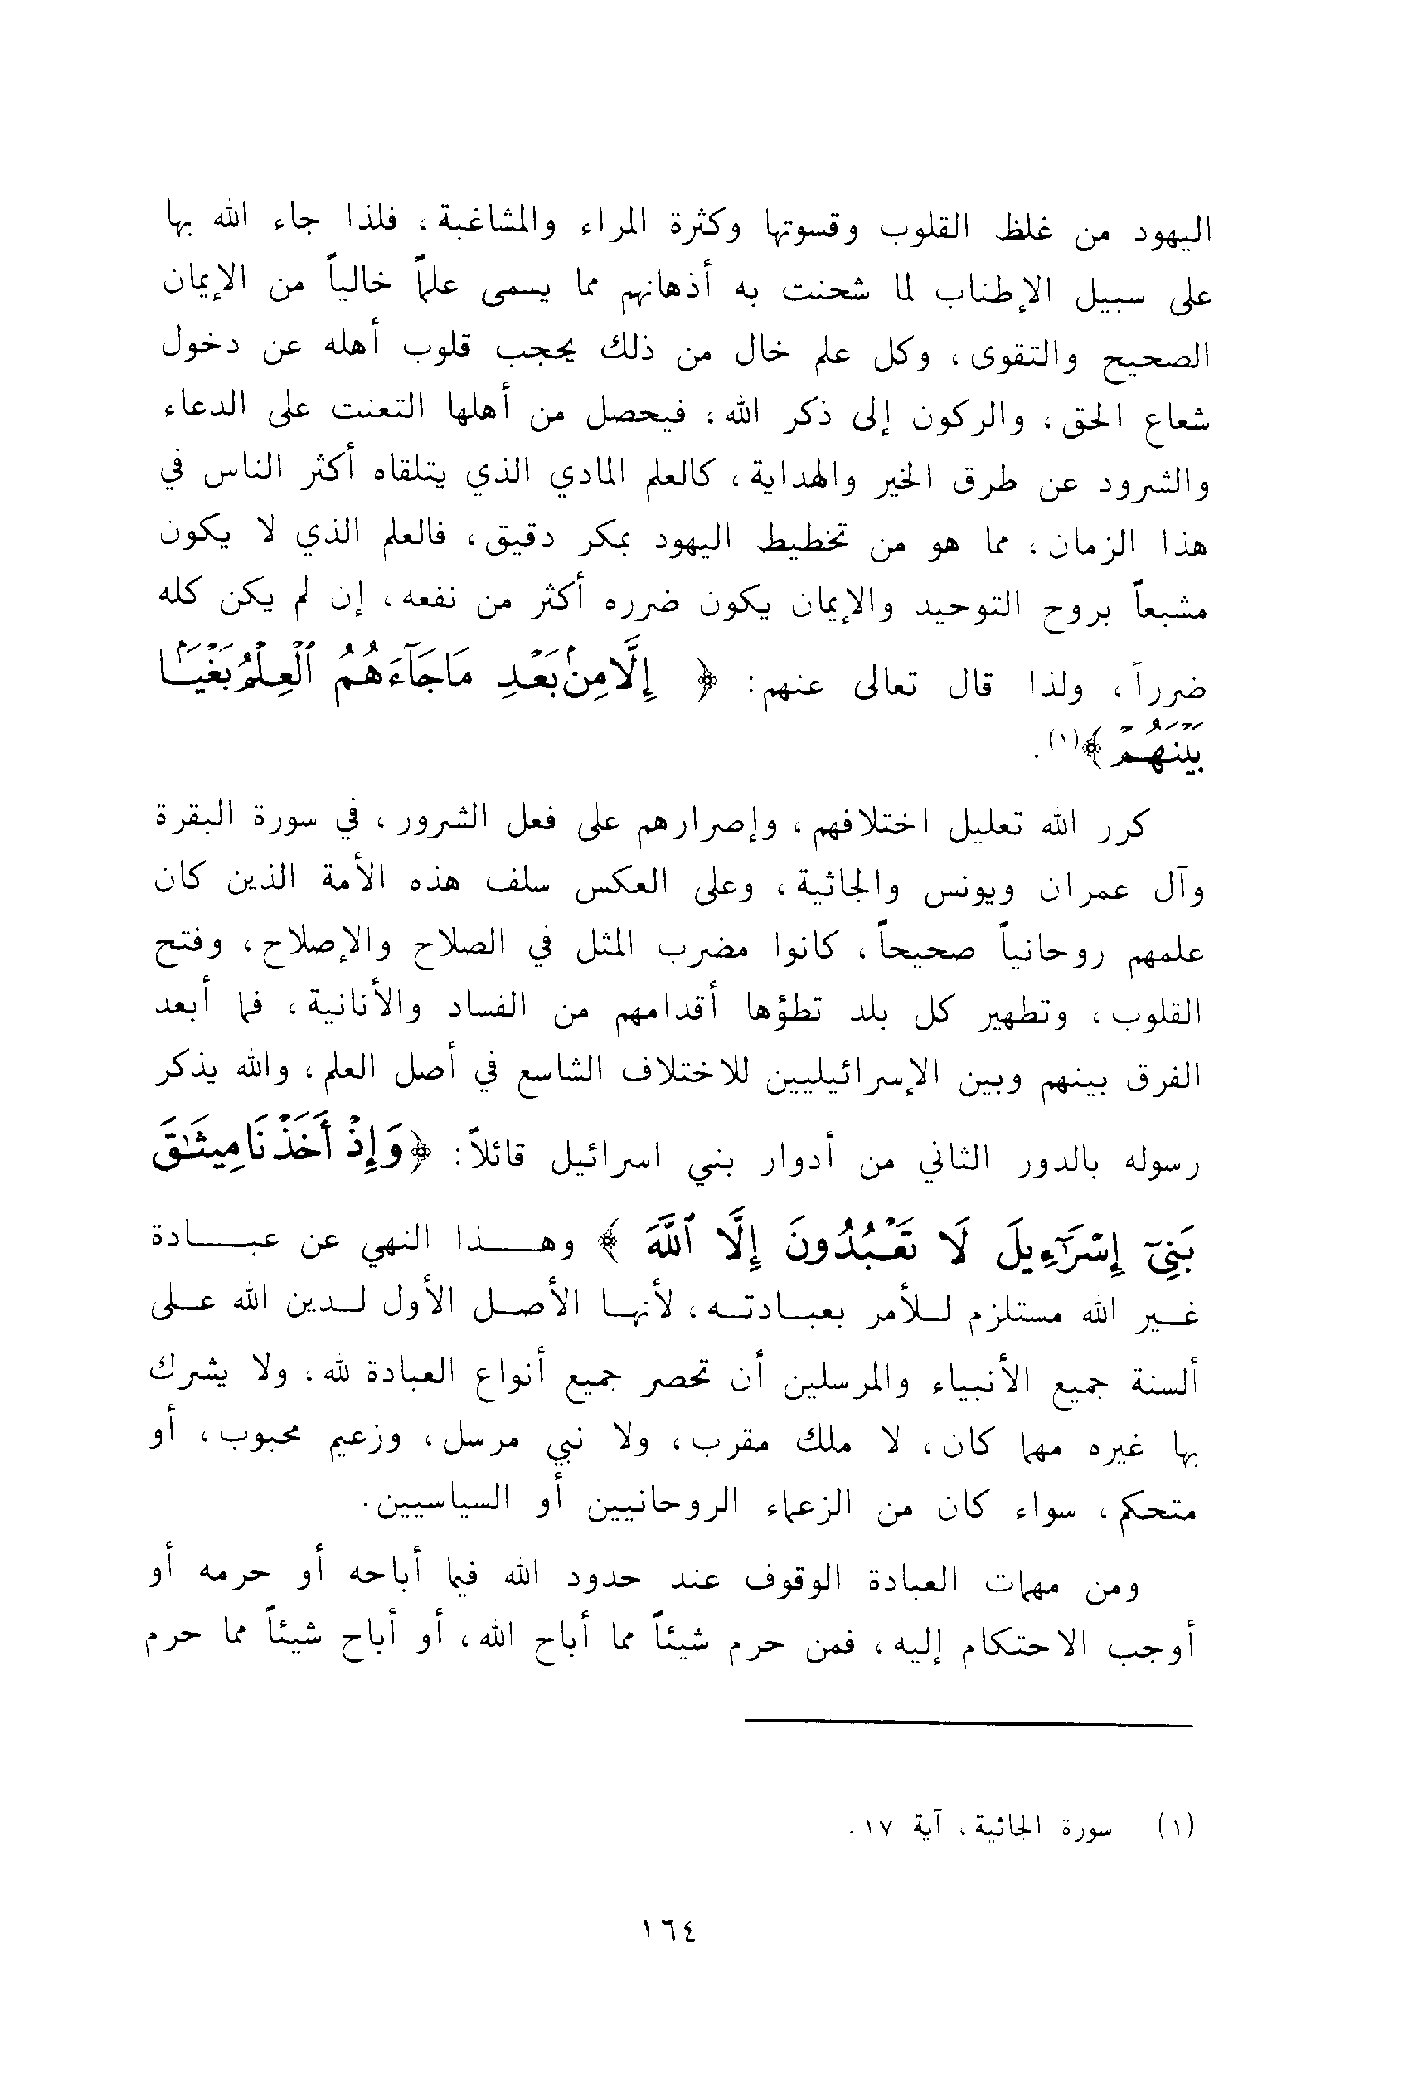 اليهود من غلظ القلوب وقسوتها وكثرة المراء والمشاغبة، فلذا جاء الله بها
على سبيل الإطناب لما شحنت به أذهانهم مما يسمى علماً خالياً من الإيمان
الصحيح والتقوى، وكل علم خال من ذلك يحجب قلوب أهله عن دخول
شعاع الحق، والركون إلى ذكر الله، فيحصل من أهلها التعنت على الدعاء
والشرود عن طرق الخير والهداية، كالعلم المادي الذي يتلقاه أكثر الناس في
هذا الزمان، مما هو من تخطيط اليهود بمكر دقيق، فالعلم الذي لا يكون
مشبعاً بروح التوحيد والإيمان يكون ضرره أكثر من نفعه، إن لم يكن كله
ضرراً، ولذا قال تعالى عنهم: ﴿ إِلَّا مِنۢ بَعۡدِ مَا جَآءَهُمُ ٱلۡعِلۡمُ بَغۡيَۢا
بَيۡنَهُمۡ ﴾(١).
كرر الله تعليل اختلافهم، وإصرارهم على فعل الشرور، في سورة البقرة
وآل عمران ويونس والجاثية، وعلى العكس سلف هذه الأمة الذين كان
علمهم روحانياً صحيحاً، كانوا مضرب المثل في الصلاح والإصلاح، وفتح
القلوب، وتطهير كل بلد تطؤها أقدامهم من الفساد والأنانية، فما أبعد
الفرق بينهم وبين الإسرائيليين للاختلاف الشاسع في أصل العلم، والله يذكر
رسوله بالدور الثاني من أدوار بني اسرائيل قائلاً: ﴿وَإِذۡ أَخَذۡنَا مِيثَٰقَ
بَنِيٓ إِسۡرَٰٓءِيلَ لَا تَعۡبُدُونَ إِلَّا ٱللَّهَ ﴾ وهـذا النهي عن عبـادة
غـير الله مستلزم لـلأمر بعبـادتـه، لأنهـا الأصـل الأول لـدين الله عـلى
ألسنة جميع الأنبياء والمرسلين أن تحصر جميع أنواع العبادة لله، ولا يشرك
بها غيره مهما كان، لا ملك مقرب، ولا نبي مرسل، وزعيم محبوب، أو
متحكم، سواء كان من الزعماء الروحانيين أو السياسيين.
ومن مهمات العبادة الوقوف عند حدود الله فيما أباحه أو حرمه أو
أوجب الاحتكام إليه، فمن حرم شيئاً مما أباح الله، أو أباح شيئاً مما حرم
(١) سورة الجاثية، آية ١٧.
١٦٤